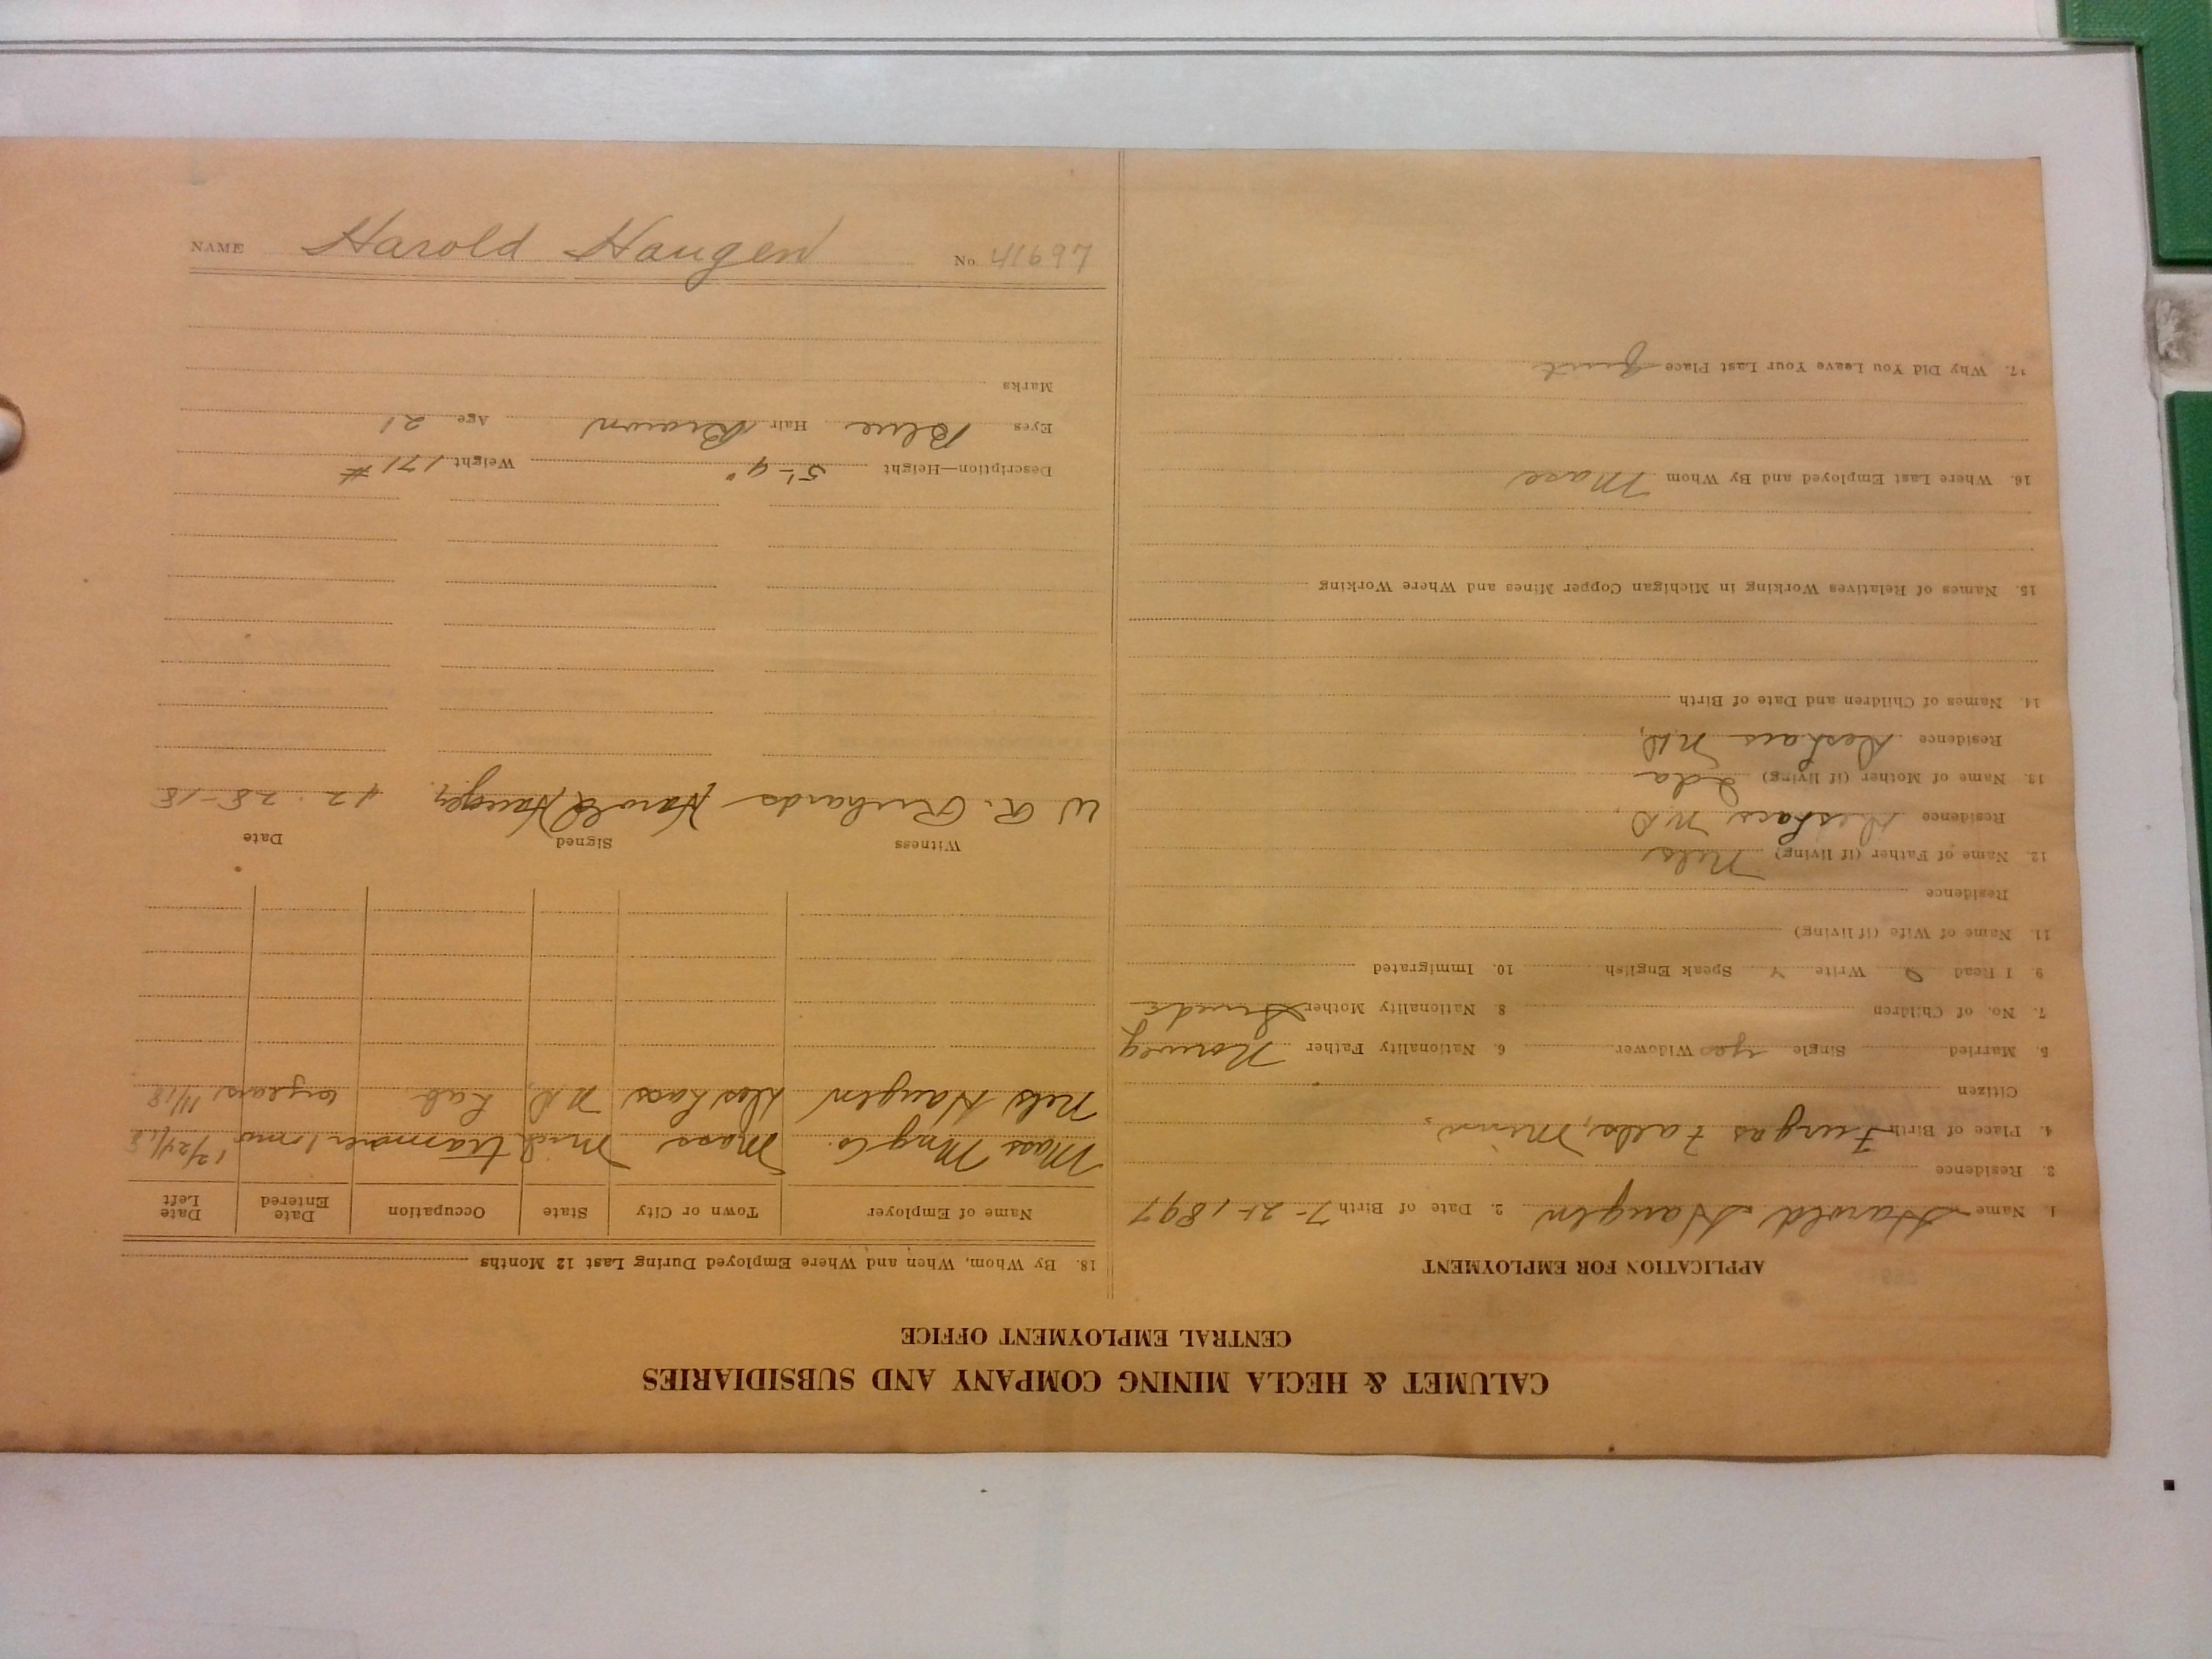 CALUMET & HECLA MINING COMPANY AND SUBSIDIARIES
CENTRAL EMPLOYMENT OFFICE
APPLICATION FOR EMPLOYMENT
1. Name Harold Haugen 2. Date of Birth 7-21-1897
3. Residence
4. Place of Birth Furgas Falls, Minn.
Citizen
5. Married Single yes Widower 6. Nationality Father Norweg
7. No. of Children 8 Nationality Mother Swede
9. I Read Write Y Speak English 10. Immigrated
11. Name of Wife (if living)
Residence
12. Name of Father (if living) Nels
Residence N.D.
13. Name of Mother (if living) Ida
Residence N.D.
14. Names of Children and Date of Birth
15. Names of Relatives Working in Michigan Copper Mines and Where Working
16. Where Last Employed and By Whom Mass
17. Why Did You Leave Your Last Place Quit
18. By Whom, When and Where Employed During Last 12 Months
Name of Employer Town or City State Occupation Date Entered Date Left
Mass Mng Co. Mass Mich 1 mo 12/24/18
Nels Haugen N.D. Lab 6 years 11/18
Witness Signed Date
W. A. Richards Harold Haugen 12-28-18
Description—Height 5'-9" Weight 171 #
Eyes Blue Hair Brown Age 21
Marks
NAME Harold Haugen No. 41697